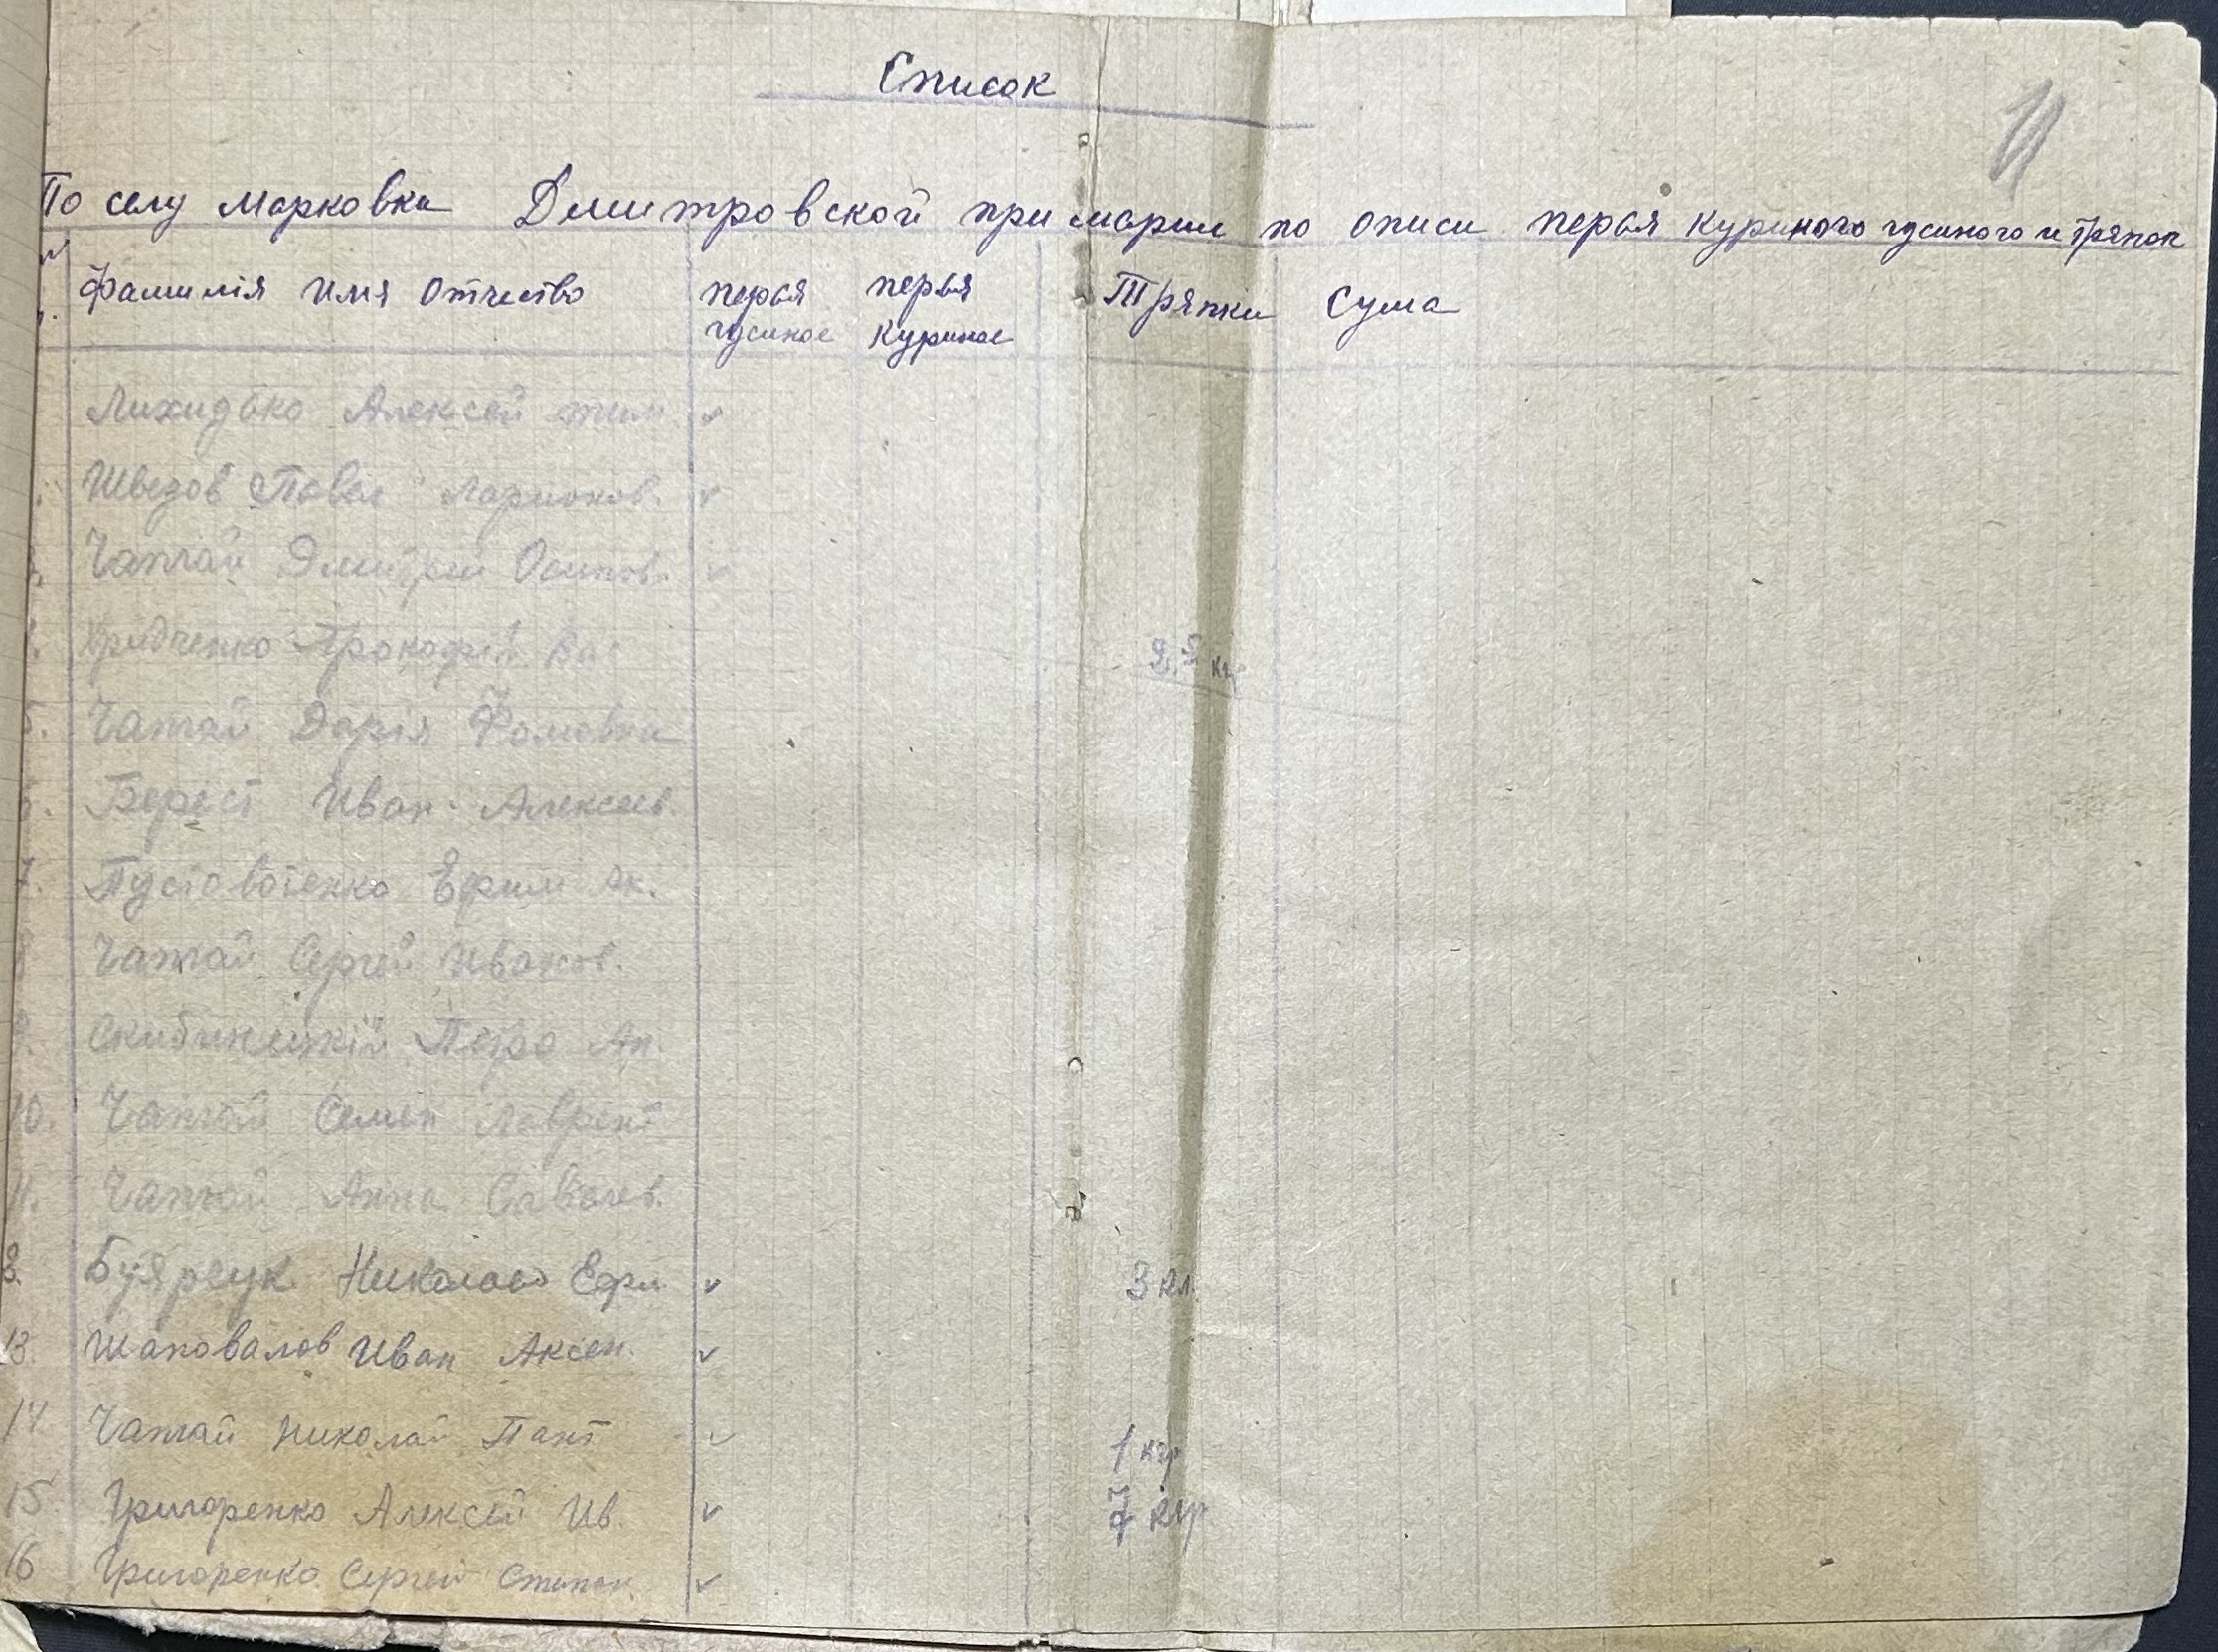 Список
По селу Марковка Дмитровской примарии по описи перья куриного гусиного и тряпок
Фамилія имя отчество перья перья Тряпки Сума
гусиное куриное
Алексей тим. v
Шведов Павел Ларионов. v
Чапгай Дмитрий Осипов. v
Прокофій Ва 2.5 кг
5. Чапгай Дарія Фомовна
6. Берест Иван Алексеев.
7. Пустовотенко Ефим Ак.
8 Чапгай Сергей Иванов.
9. Скибинецкій Петро Ан.
10. Чапгай Семен Лаврент
11. Чапгай Анна Савелев.
Николай Ефи v 3 кл.
13. Шаповалов Иван Аксен. v
14 Чапгай Николай Пант v 1 кгр
15 Григоренко Алексей Ив. v 7 кгр
16 Григоренко Сергей Степан. v